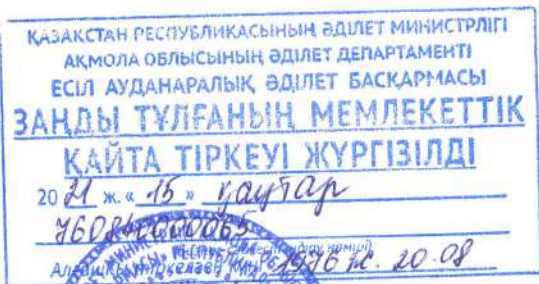 ҚАЗАҚСТАН РЕСПУБЛИКАСЫНЫҢ ӘДІЛЕТ МИНИСТРЛІГІ
АҚМОЛА ОБЛЫСЫНЫҢ ӘДІЛЕТ ДЕПАРТАМЕНТІ
ЕСІЛ АУДАНАРАЛЫҚ ӘДІЛЕТ БАСҚАРМАСЫ
ЗАҢДЫ ТҰЛҒАНЫҢ МЕМЛЕКЕТТІК
ҚАЙТА ТІРКЕУІ ЖҮРГІЗІЛДІ
20 21 ж. « 15 » қаңтар
760840000065
Алғашқы тіркелген күні 1976 ж. 20.08